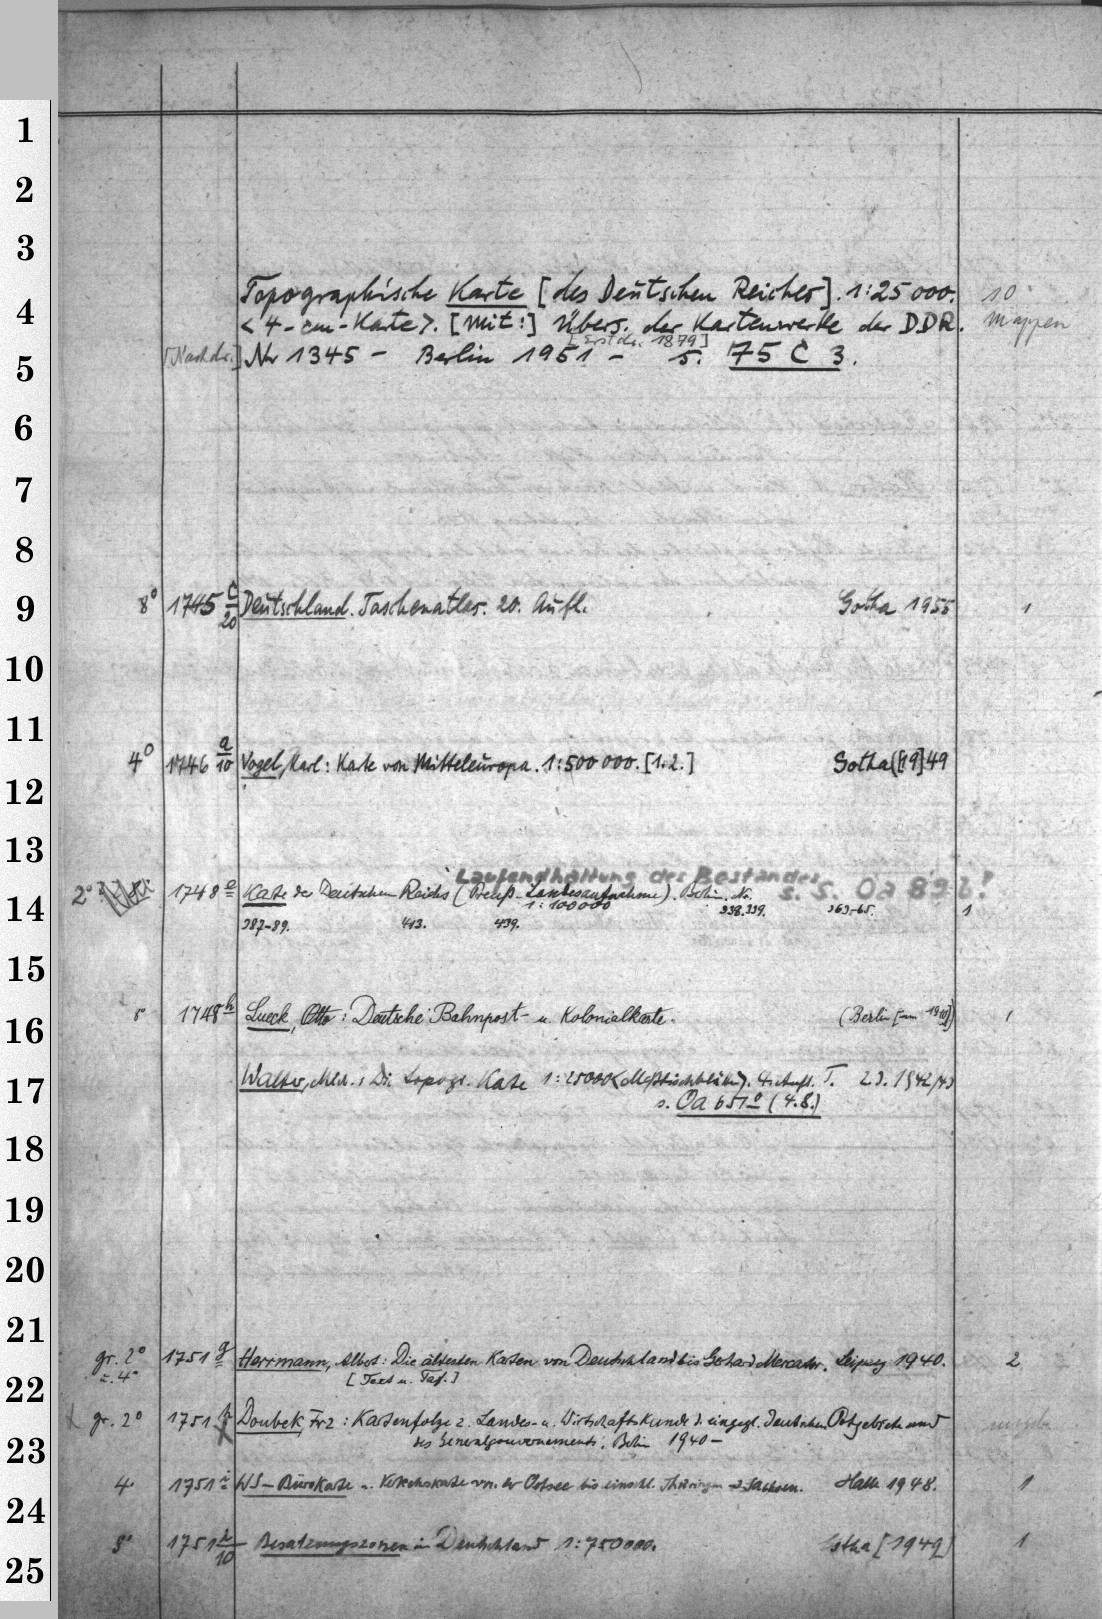 1
2
3
Topographische Karte [des Deutschen Reiches]. 1:25 000. 10
4
<4-cm-Karte>. [Mit:] Übers. der Kartenwerke der DDR. Mappen
[Erstdr. 1879]
5
[Nachdr.] Nr 1345 - Berlin 1951 - s. 75 C 3.
6
7
8
9
8° 1745 c/20 Deutschland. Taschenatlas. 20. Aufl. Gotha 1955 1
10
11
4° 1746 a/10 Vogel, Karl: Karte von Mitteleuropa. 1:500 000. [1.2.] Gotha ([19]49
12
13
Laufendhaltung des Bestandes
s. S. Oa 8961!
14
2° 1748 e Karte des Deutschen Reichs (Preuß. Landesaufnahme). Berlin. No.
1:100000 338.339. 363-65. 1
387-89. 413. 439.
15
16
1748 h Lueck, Otto: Deutsche Bahnpost- u. Kolonialkarte. (Berlin [um 1910]) 1
17
Walter, : Die topogr. Karte 1:25000 <Meßtischblätter>. 4. Aufl. T. 2). 1942/43
s. Oa 651 (4.8.)
18
19
20
21
gr. 2° 1751 g Herrmann, Albert: Die ältesten Karten von Deutschland bis Gerhard Mercator. Leipzig 1940. 2
u. 4° [Text u. Taf.]
22
gr. 2° 1751 h Doubek, Frz: Kartenfolge z. Landes- u. Wirtschaftskunde d. eingegl. deutschen Ostgebiete und
des Generalgouvernements. Berlin 1940-
23
4° 1751 i WS-Bürokarte u. Verkehrskarte von der Ostsee bis einschl. Thüringen u. Sachsen. Halle 1948. 1
24
8° 1751 k/10 Besatzungszonen in Deutschland 1:750000. Gotha [1949] 1
25